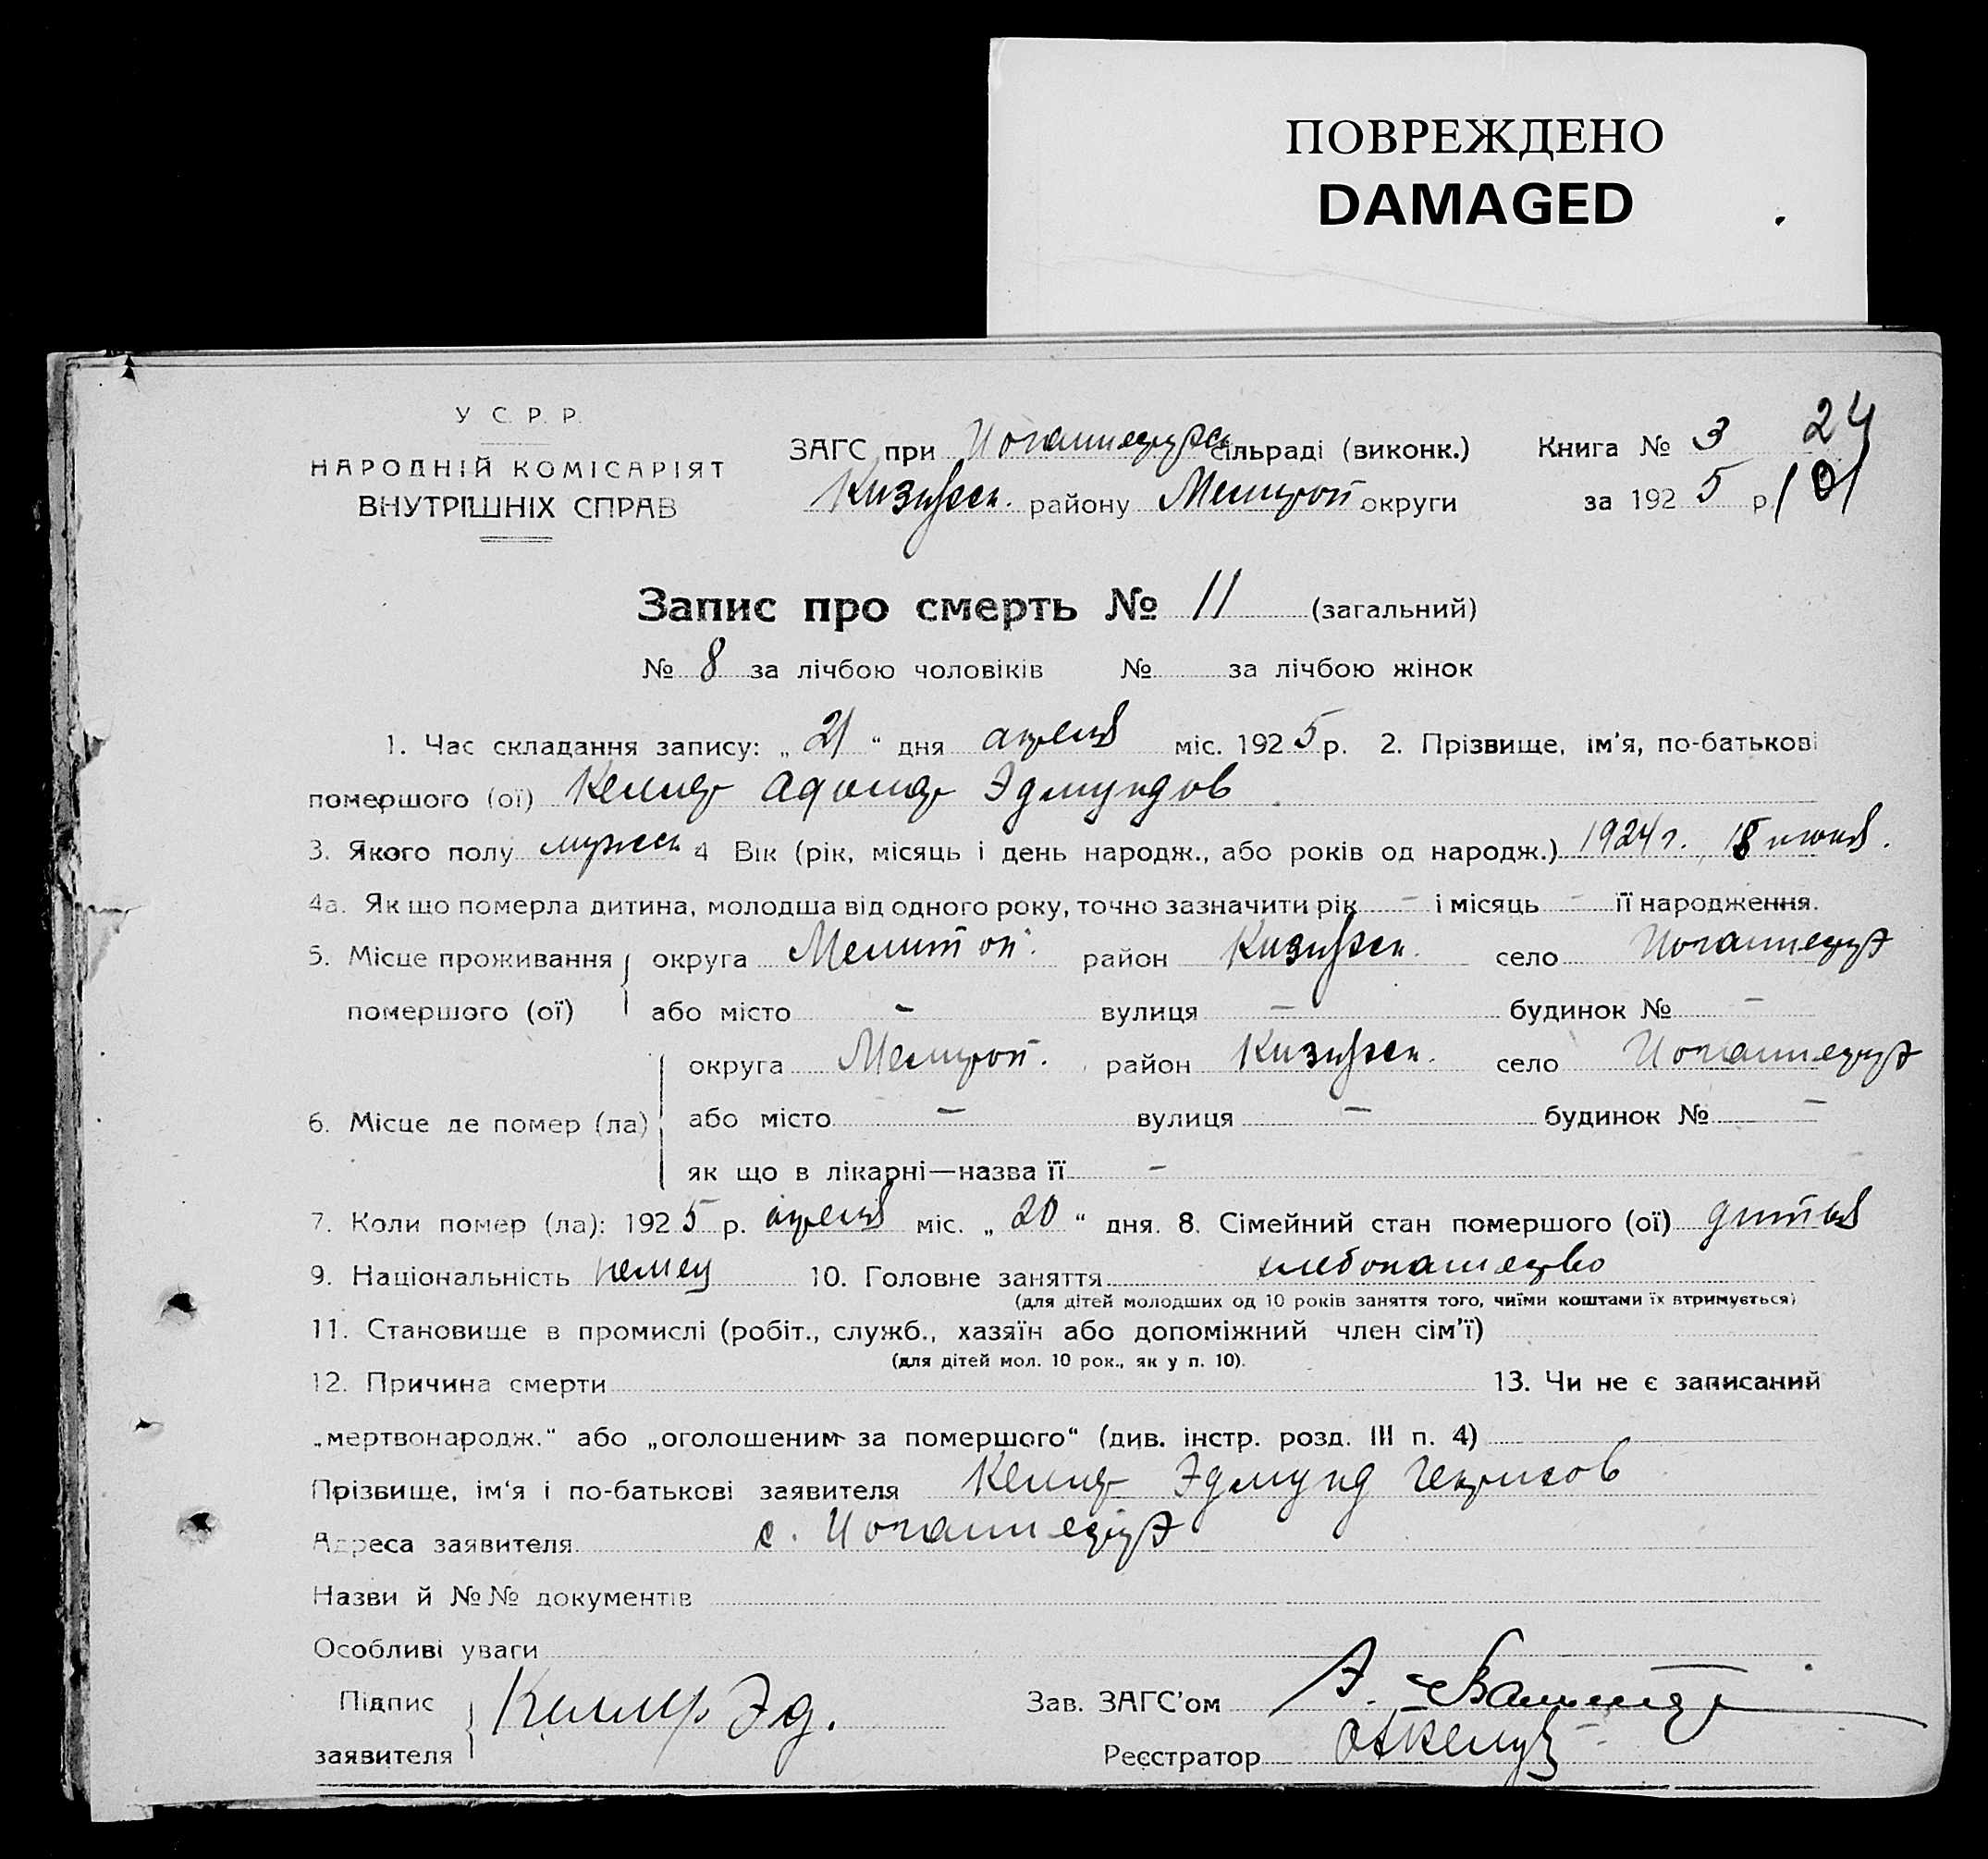 ПОВРЕЖДЕНО
DAMAGED
У С. Р. Р.
НАРОДНІЙ КОМІСАРІЯТ
ВНУТРІШНІХ СПРАВ
ЗАГС при Иоганнесрузск сільраді (виконк.) Книга № 3 24
Кизиярск. району Мелитоп округи за 1925 р.
Запис про смерть № 11 (загальний)
№ 8 за лічбою чоловіків № за лічбою жінок
1. Час складання запису: „21“ дня апреля міс. 1925 р. 2. Прізвище, ім'я, по-батькові
помершого (ої) Келлер Адольф Эдмундов
3. Якого полу мужск 4 Вік (рік, місяць і день народж., або років од народж.) 1924 г. 18 июля.
4а. Як що померла дитина, молодша від одного року, точно зазначити рік – і місяць – її народження.
5. Місце проживання округа Мелитоп. район Кизиярск. село Иоганнесру
помершого (ої) або місто – вулиця – будинок № –
округа Мелитоп. район Кизиярск. село Иоганнесру
6. Місце де помер (ла) або місто – вулиця – будинок № –
як що в лікарні—назва її –
7. Коли помер (ла): 1925 р. апреля міс. „20“ дня. 8. Сімейний стан помершого (ої) дитя
9. Національність немец 10. Головне заняття хлебопашество
(для дітей молодших од 10 років заняття того, чиїми коштами їх втримується)
11. Становище в промислі (робіт., служб., хазяїн або допоміжний член сім'ї)
(для дітей мол. 10 рок., як у п. 10).
12. Причина смерти 13. Чи не є записаний
„мертвонародж.“ або „оголошеним за помершого“ (див. інстр. розд. III п. 4)
Прізвище, ім'я і по-батькові заявителя Келлер Эдмунд Генрихов
Адреса заявителя с. Иоганнесру
Назви й №№ документів
Особливі уваги
Підпис заявителя Келлер Эд.
Зав. ЗАГС'ом
Реєстратор